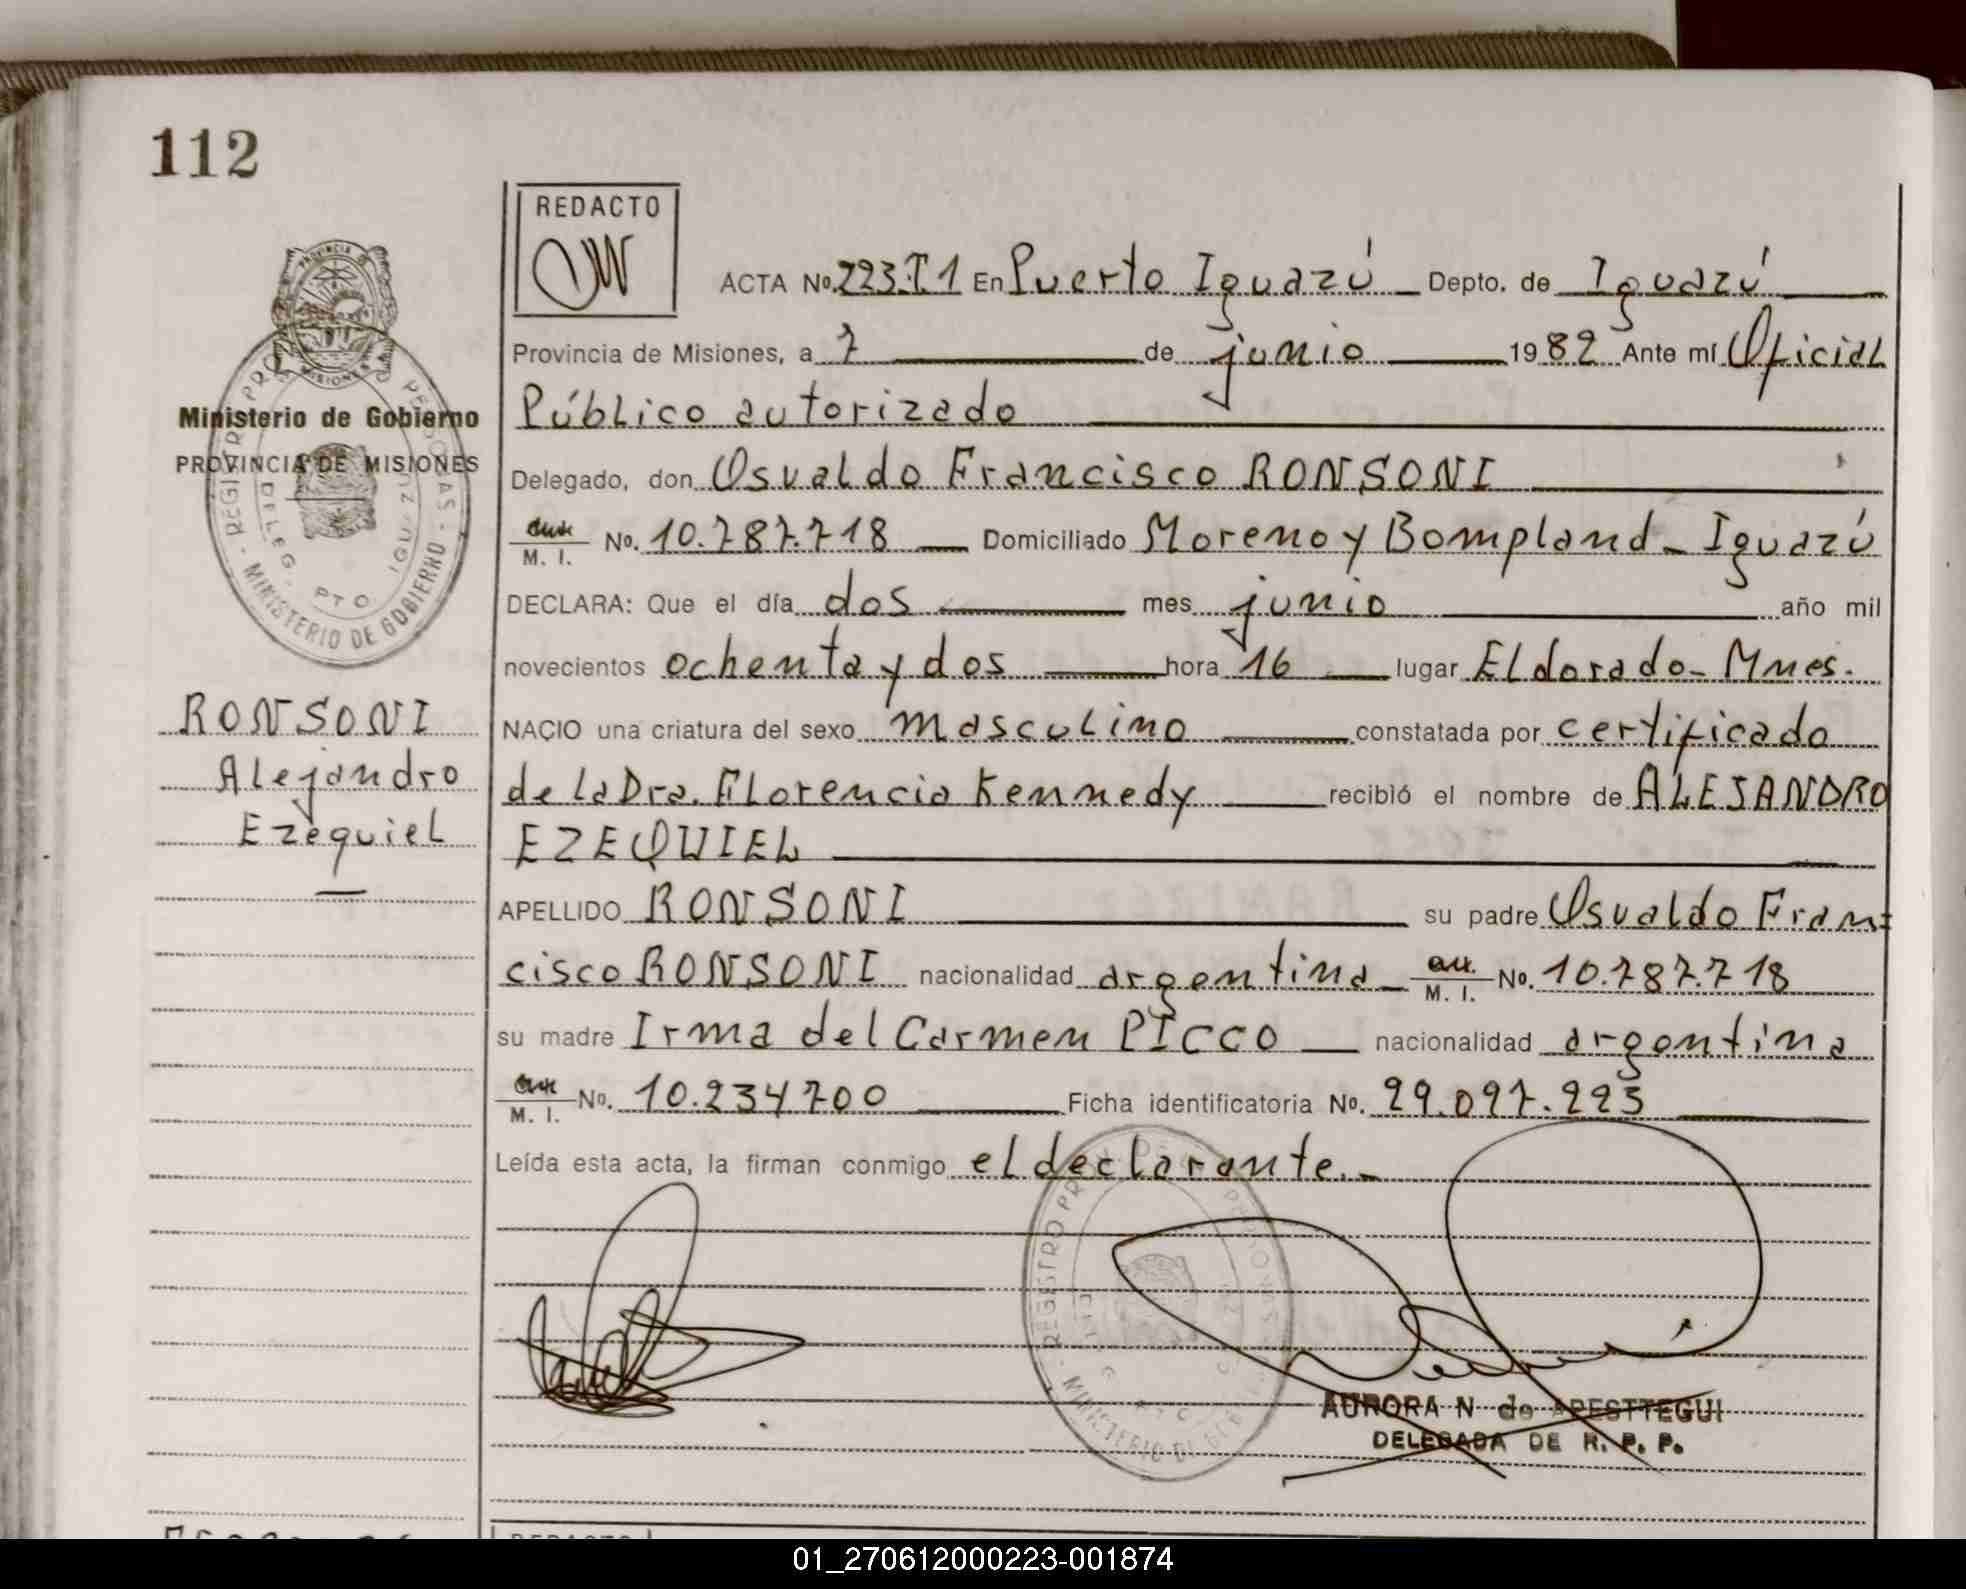 112
REDACTO
ACTA No. 223.T.1 En Puerto Iguazú Depto. de Iguazú
Provincia de Misiones, a 7 de junio 1982 Ante mí Oficial
Público autorizado
Delegado, don Osvaldo Francisco RONSONI
M. I. No. 10.787.718 Domiciliado Moreno y Bompland - Iguazú
DECLARA: Que el día dos mes junio año mil
novecientos ochenta y dos hora 16 lugar Eldorado - Mnes.
NACIO una criatura del sexo masculino constatada por certificado
de la Dra. Florencia Kennedy recibió el nombre de ALEJANDRO
EZEQUIEL
APELLIDO RONSONI su padre Osvaldo Fran=
cisco RONSONI nacionalidad argentina - M. I. No. 10.787.718
su madre Irma del Carmen PICCO nacionalidad argentina
M. I. No. 10.234700 Ficha identificatoria No. 29.097.223
Leída esta acta, la firman conmigo el declarante.-
AURORA N de APESTTEGUI
DELEGADA DE R. P. P.
PROVINCIA DE
MISIONES
Ministerio de Gobierno
PROVINCIA DE MISIONES
MINISTERIO DE GOBIERNO
RONSONI
Alejandro
Ezequiel
REDACTO
01_270612000223-001874